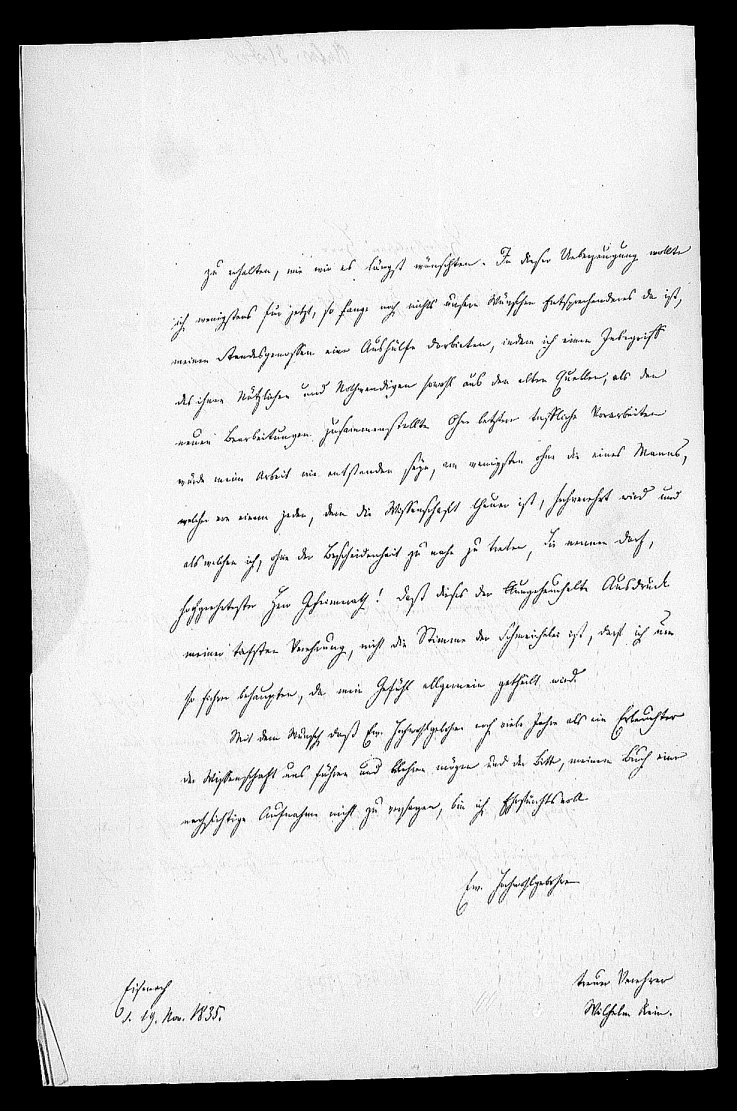 zu erhalten, wie wir es längst wünschten. In dieser Ueberzeugung wollte
ich wenigstens für jetzt, so lange noch nichts unsern Wünschen Entsprechenderes da ist,
meinen Standesgenossen eine Aushülfe darbieten, indem ich einen Inbegriff
des ihnen Nützlichen und Nothwendigen sowohl aus den alten Quellen, als den
neuen Bearbeitungen zusammenstellte. Ohne letztere treffliche Vorarbeiten
würde meine Arbeit nie entstanden seyn, am wenigsten ohne die eines Mannes,
welcher von einem jeden, dem die Wissenschaft theuer ist, hochverehrt wird und
als welchen ich, ohne der Bescheidenheit zu nahe zu treten, Sie nennen darf,
hochgeehrtester Herr Geheimrath! Daß dieses der ungeheuchelte Ausdruck
meiner tiefsten Verehrung, nicht die Stimme der Schmeichelei ist, darf ich um
so sicherer behaupten, da mein Gefühl allgemein getheilt wird.
Mit dem Wunsch, daß Ew. Hochwohlgeboren noch viele Jahre als ein Erleuchter
der Wissenschaft uns führen und lehren mögen und der Bitte, meinem Buch eine
nachsichtige Aufnahme nicht zu versagen, bin ich Ehrfurchtsvoll
Ew. Hochwohlgeboren
treuer Verehrer
Wilhelm Rein.
Eisenach
d. 19. Nov. 1835.